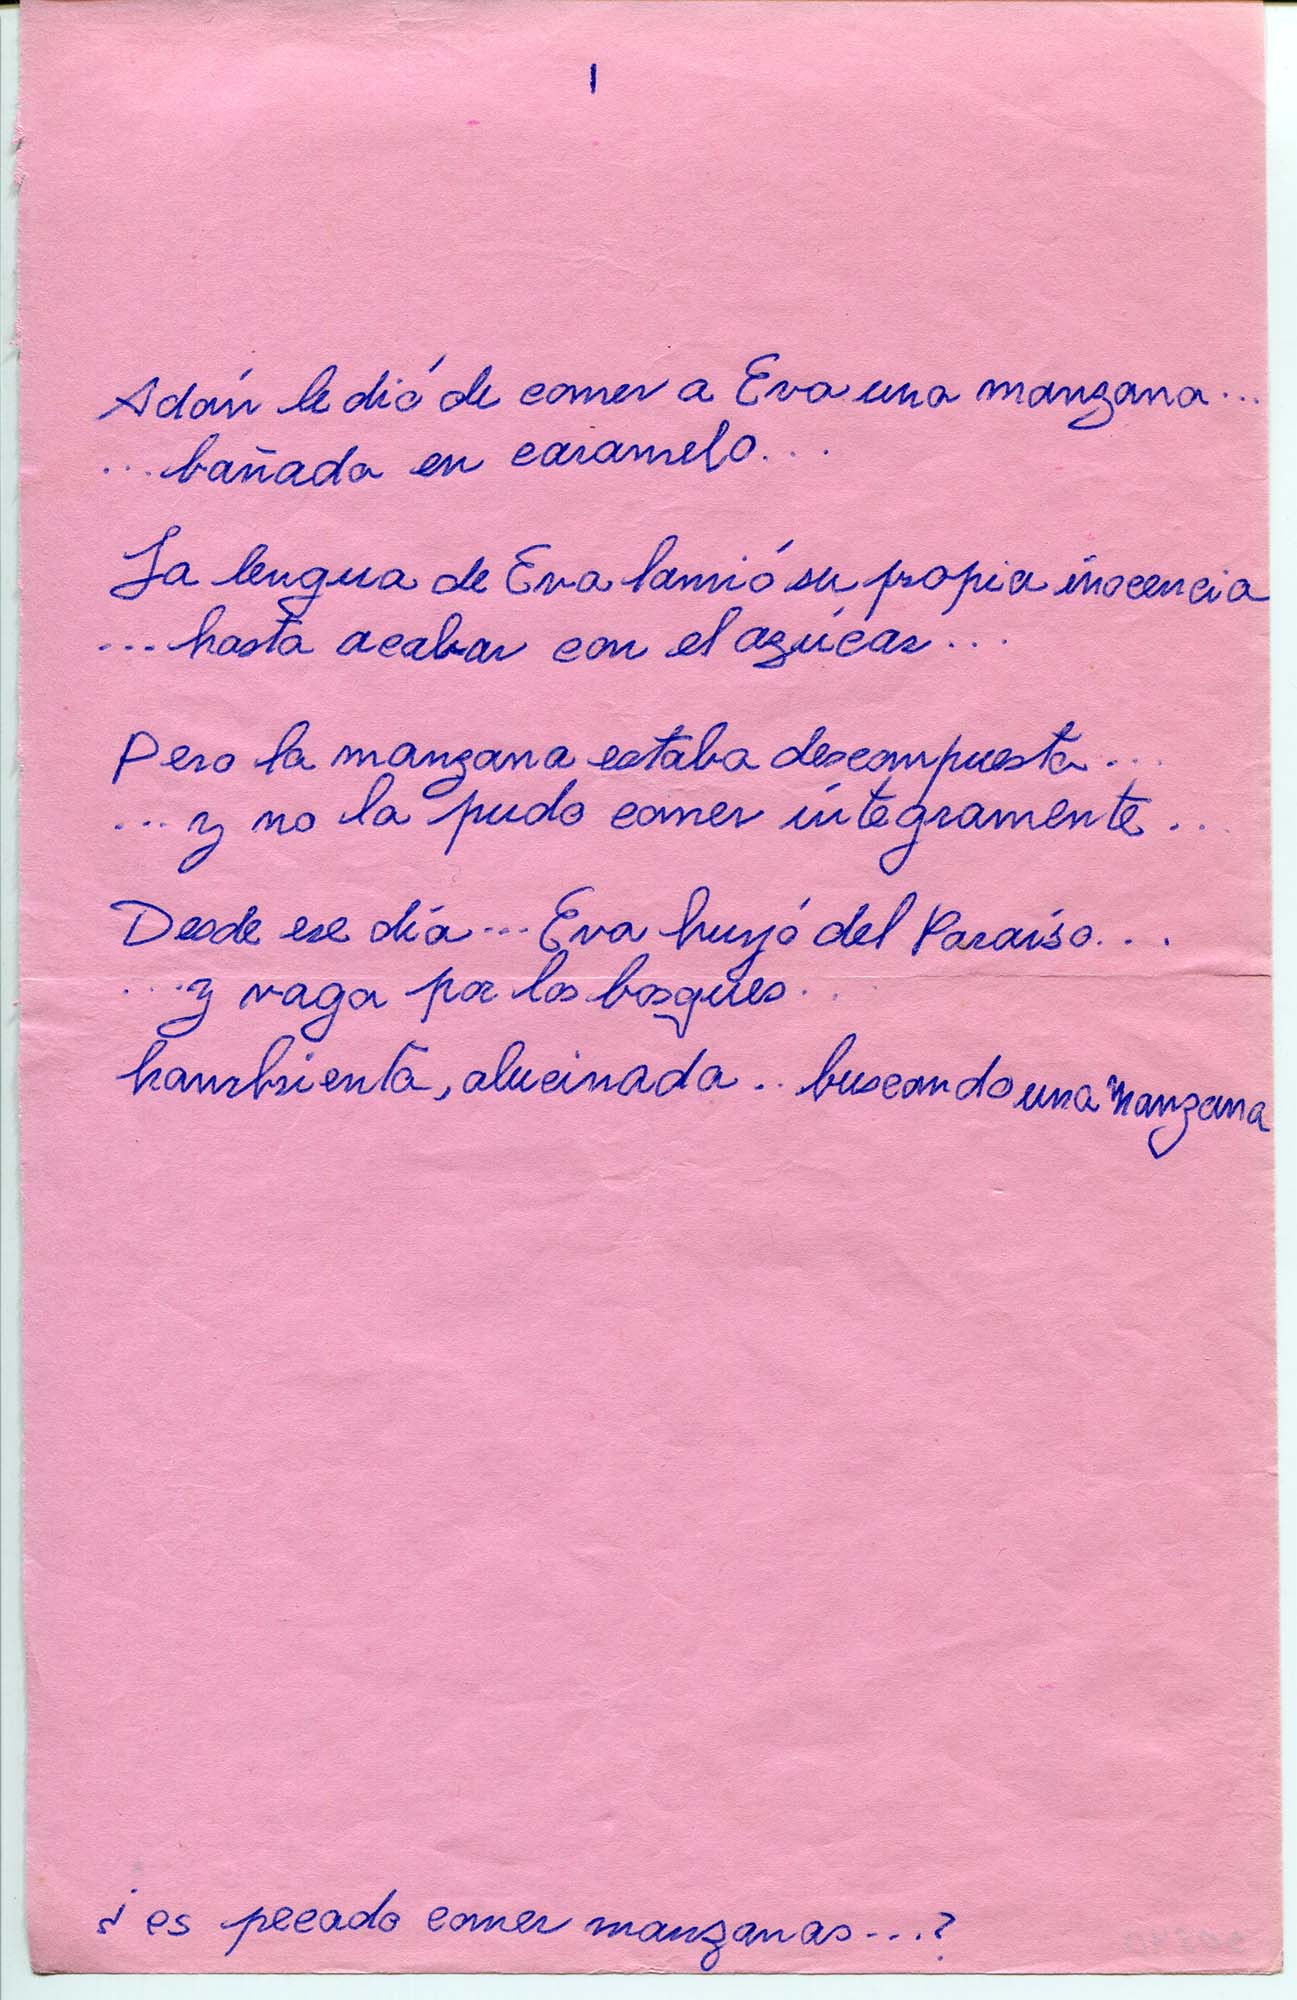 1
Adán le dió de comer a Eva una manzana...
...bañada en caramelo...
La lengua de Eva lamió su propia inocencia
...hasta acabar con el azúcar...
Pero la manzana estaba descompuesta...
...y no la pudo comer íntegramente...
Desde ese día... Eva huyó del Paraíso...
...y vaga por los bosques...
hambrienta, alucinada.. buscando una manzana
¿es pecado comer manzanas...?